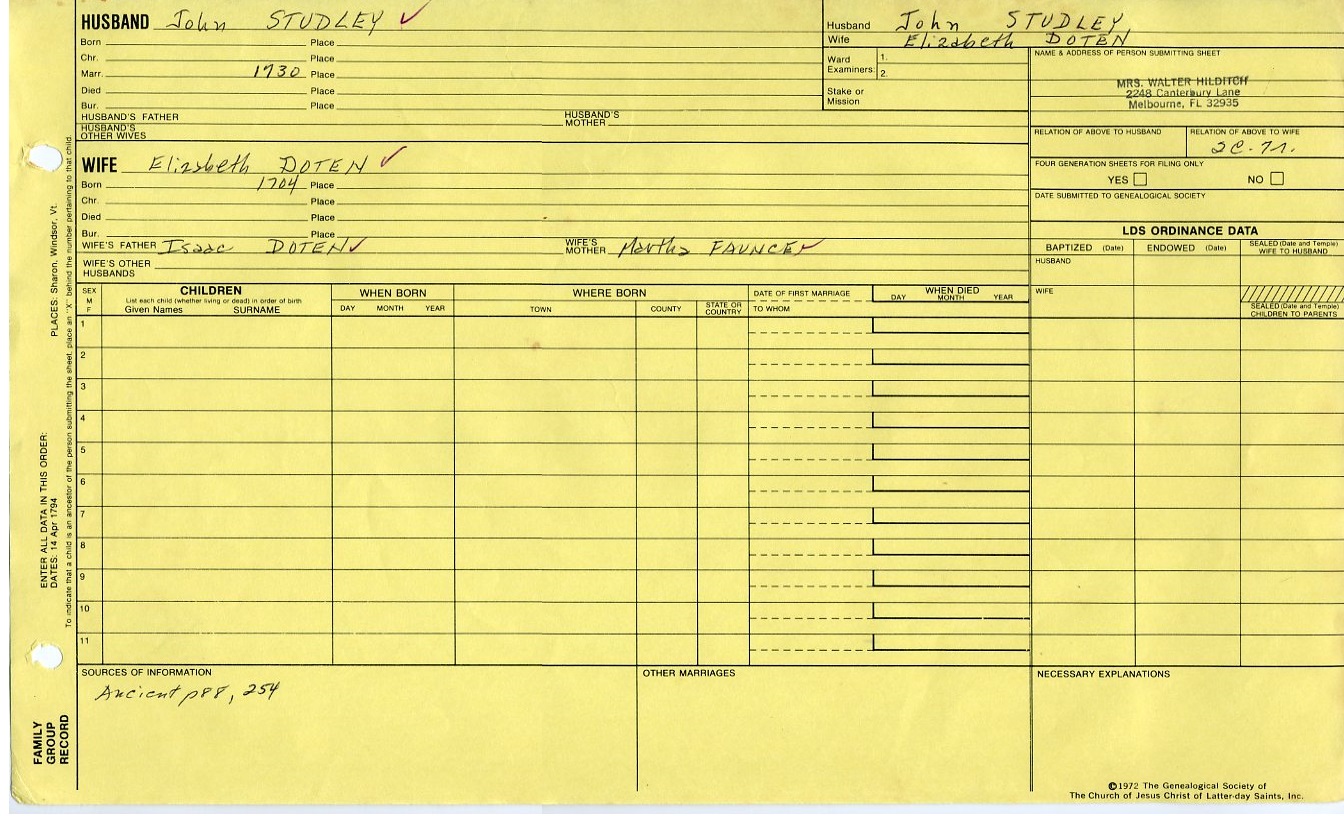 HUSBAND John STUDLEY ✓
Born Place
Chr. Place
Marr. 1730 Place
Died Place
Bur. Place
HUSBAND'S FATHER HUSBAND'S MOTHER
HUSBAND'S OTHER WIVES
Husband John STUDLEY
Wife Elizabeth DOTEN
Ward Examiners: 1.
2.
Stake or Mission
NAME & ADDRESS OF PERSON SUBMITTING SHEET
MRS. WALTER HILDITCH
2248 Canterbury Lane
Melbourne, FL 32935
RELATION OF ABOVE TO HUSBAND RELATION OF ABOVE TO WIFE
FOUR GENERATION SHEETS FOR FILING ONLY
YES NO
DATE SUBMITTED TO GENEALOGICAL SOCIETY
WIFE Elizabeth DOTEN ✓
Born 1704 Place
Chr. Place
Died Place
Bur. Place
WIFE'S FATHER Isaac DOTEN ✓ WIFE'S MOTHER Martha FAUNCE ✓
WIFE'S OTHER HUSBANDS
LDS ORDINANCE DATA
BAPTIZED (Date) ENDOWED (Date) SEALED (Date and Temple) WIFE TO HUSBAND
HUSBAND
WIFE
SEALED (Date and Temple) CHILDREN TO PARENTS
SEX M F
CHILDREN
List each child (whether living or dead) in order of birth
Given Names SURNAME
WHEN BORN
DAY MONTH YEAR
WHERE BORN
TOWN COUNTY STATE OR COUNTRY
DATE OF FIRST MARRIAGE
TO WHOM
WHEN DIED
DAY MONTH YEAR
1
2
3
4
5
6
7
8
9
10
11
SOURCES OF INFORMATION
Ancient p88, 254
OTHER MARRIAGES
NECESSARY EXPLANATIONS
©1972 The Genealogical Society of
The Church of Jesus Christ of Latter-day Saints, Inc.
FAMILY GROUP RECORD
ENTER ALL DATA IN THIS ORDER:
DATES: 14 Apr 1794
PLACES: Sharon, Windsor, Vt.
To indicate that a child is an ancestor of the person submitting the sheet, place an "X" behind the number pertaining to that child.